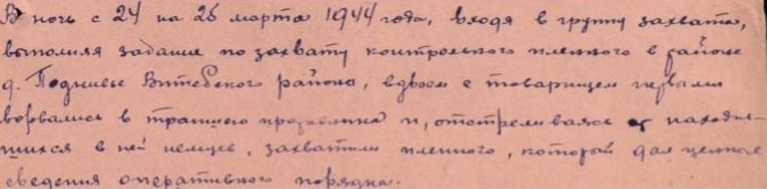 В ночь с 24 на 25 марта 1944 года, входя в группу захвата,
выполняя задание по захвату контрольного пленного в районе
д. Поднивье Витебского района, вдвоем с товарищем первыми
ворвались в траншею противника и, отстреливаясь от находив-
шихся в ней немцев, захватили пленного, который дал ценные
сведения оперативного порядка.